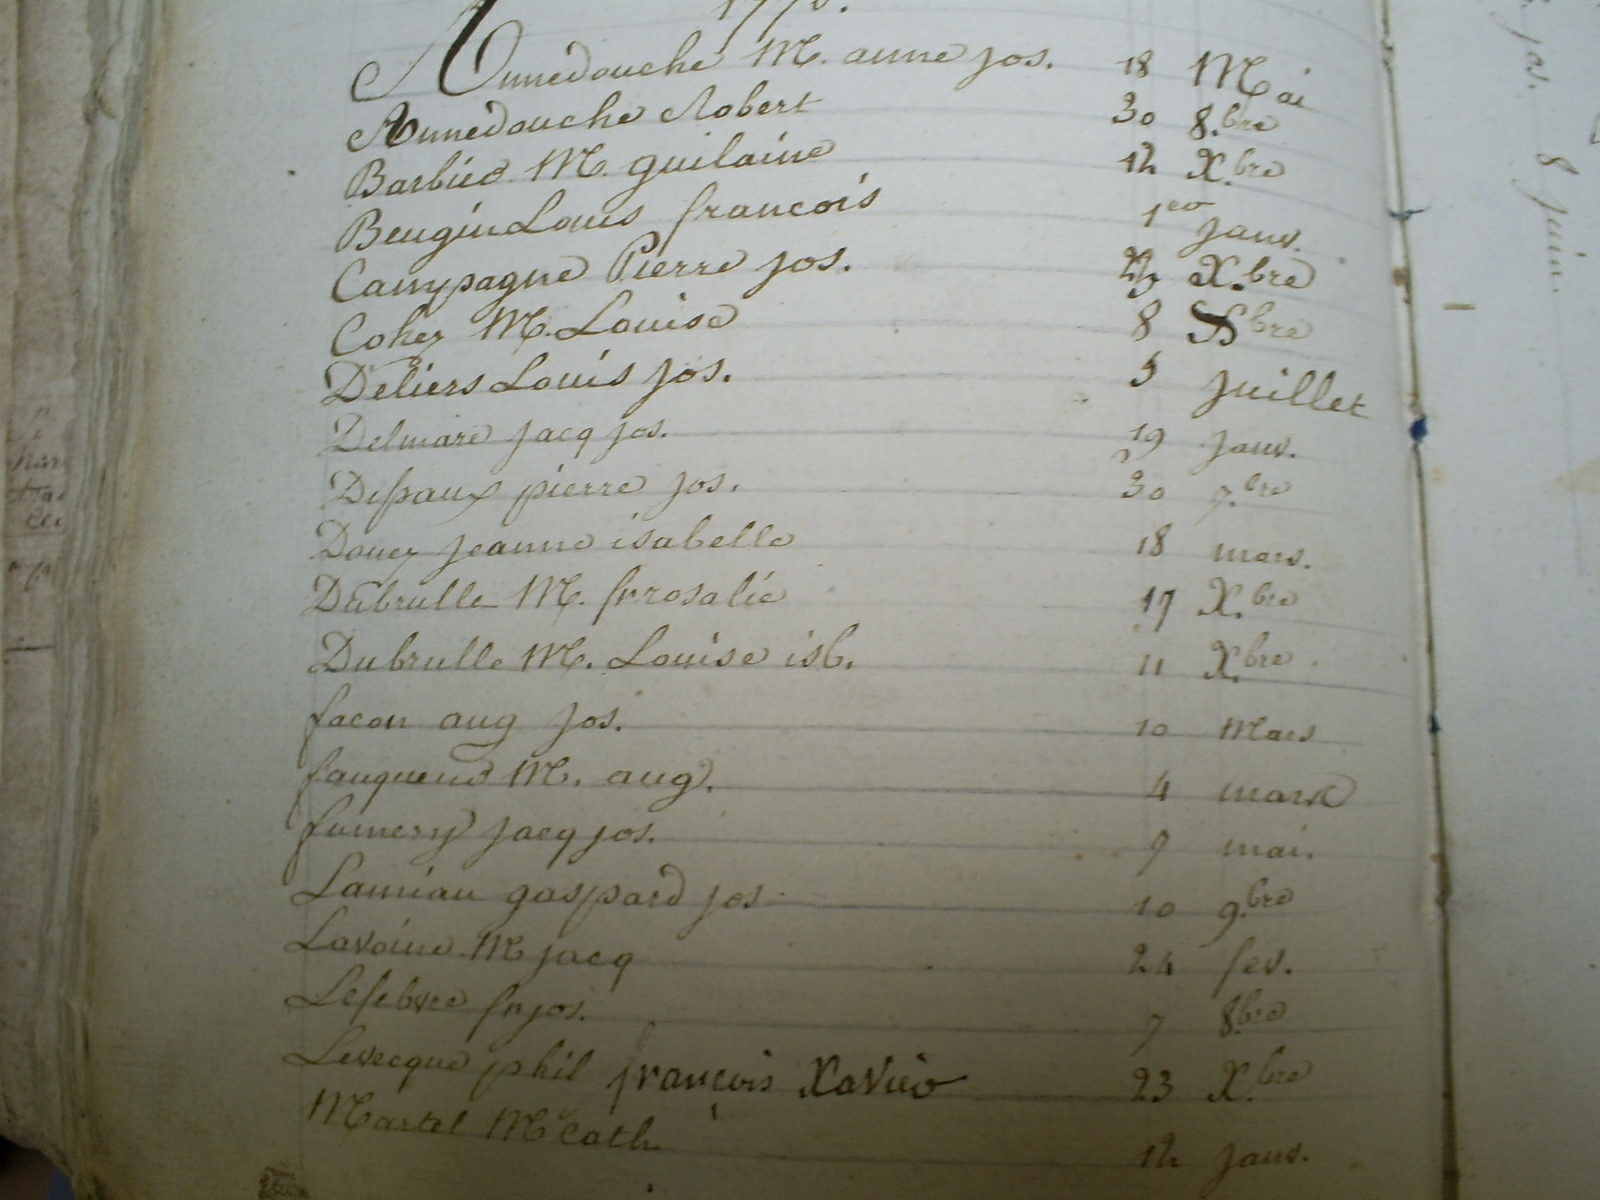 Annedouche M. anne jos. 18 Mai
Annedouche Robert 30 8.bre
Barbier M. guilaine 12 X.bre
Beugin Louis francois 1er janv.
Campagne Pierre jos. X.bre
Cohez M. Louise 8 bre
Deliers Louis jos. 5 juillet
Delmare jacq jos. 19 janv.
Depaux pierre jos. 30 7.bre
Douez jeanne isabelle 18 mars.
Dubrulle M. fr rosalie 17 X.bre
Dubrulle M. Louise isb. 11 X.bre
facon aug jos. 10 Mars
fauquene M. aug. 4 mars
fumery jacq jos. 9 mai.
Lamiau gaspard jos 10 9.bre
Lavoine M jacq 24 fev.
Lefebvre fr jos. 7 8.bre
Levecque phil françois Xavier 23 X.bre
Martel M Cath. 12 janv.
jos. 8 juin.